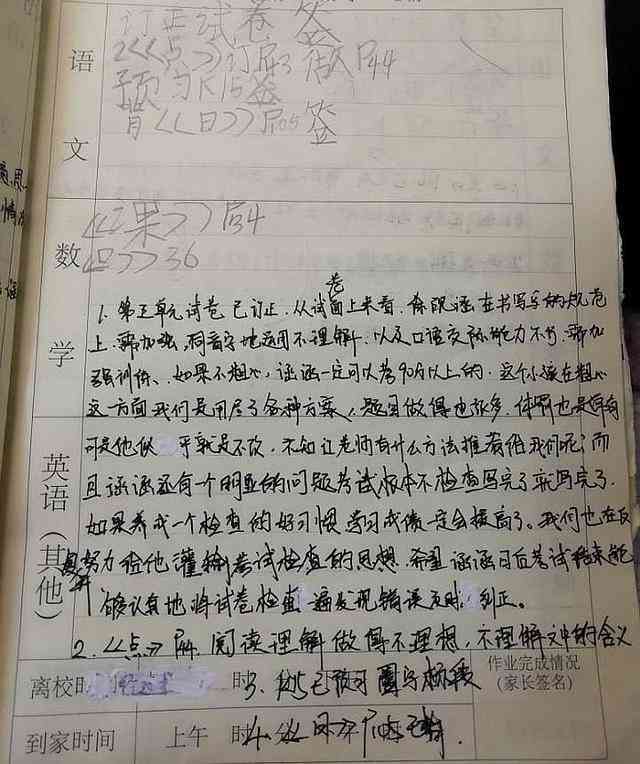 订正试卷 签
2《点》订P43 做P44
预习K15签
背《日》P105签
语
文
《果》P34
36
数
学
英语（其他）
1、第五单元试卷已订正、从试卷面上来看、除跟涵在书写字的规范
上、需加强，同音字地运用不理解、以及口语交际能力不
强训练、如果不粗心、涵涵一定可以考90分以上的、这个小孩在粗心
这一方面我们是用尽了各种方案、题目做得也很多、体罚也是
可是他似乎就是不改、不知让老师有什么方法推荐给我们呢；而
且涵涵还有一个明显的问题考试根本不检查写完了就写完了、
如果养成一个检查的好习惯学习成绩一定会提高了。我们也在
努力给他灌输考试检查的思想、希望涵涵日后考试结束能
够认真地将试卷检查一遍发现错误及时纠正。
2、《点》P44、阅读理解做得不理想，不理解文中的含义
离校时 时3、K15已预习圈写
作业完成情况
（家长签名）
到家时间 上午 时4、《日》